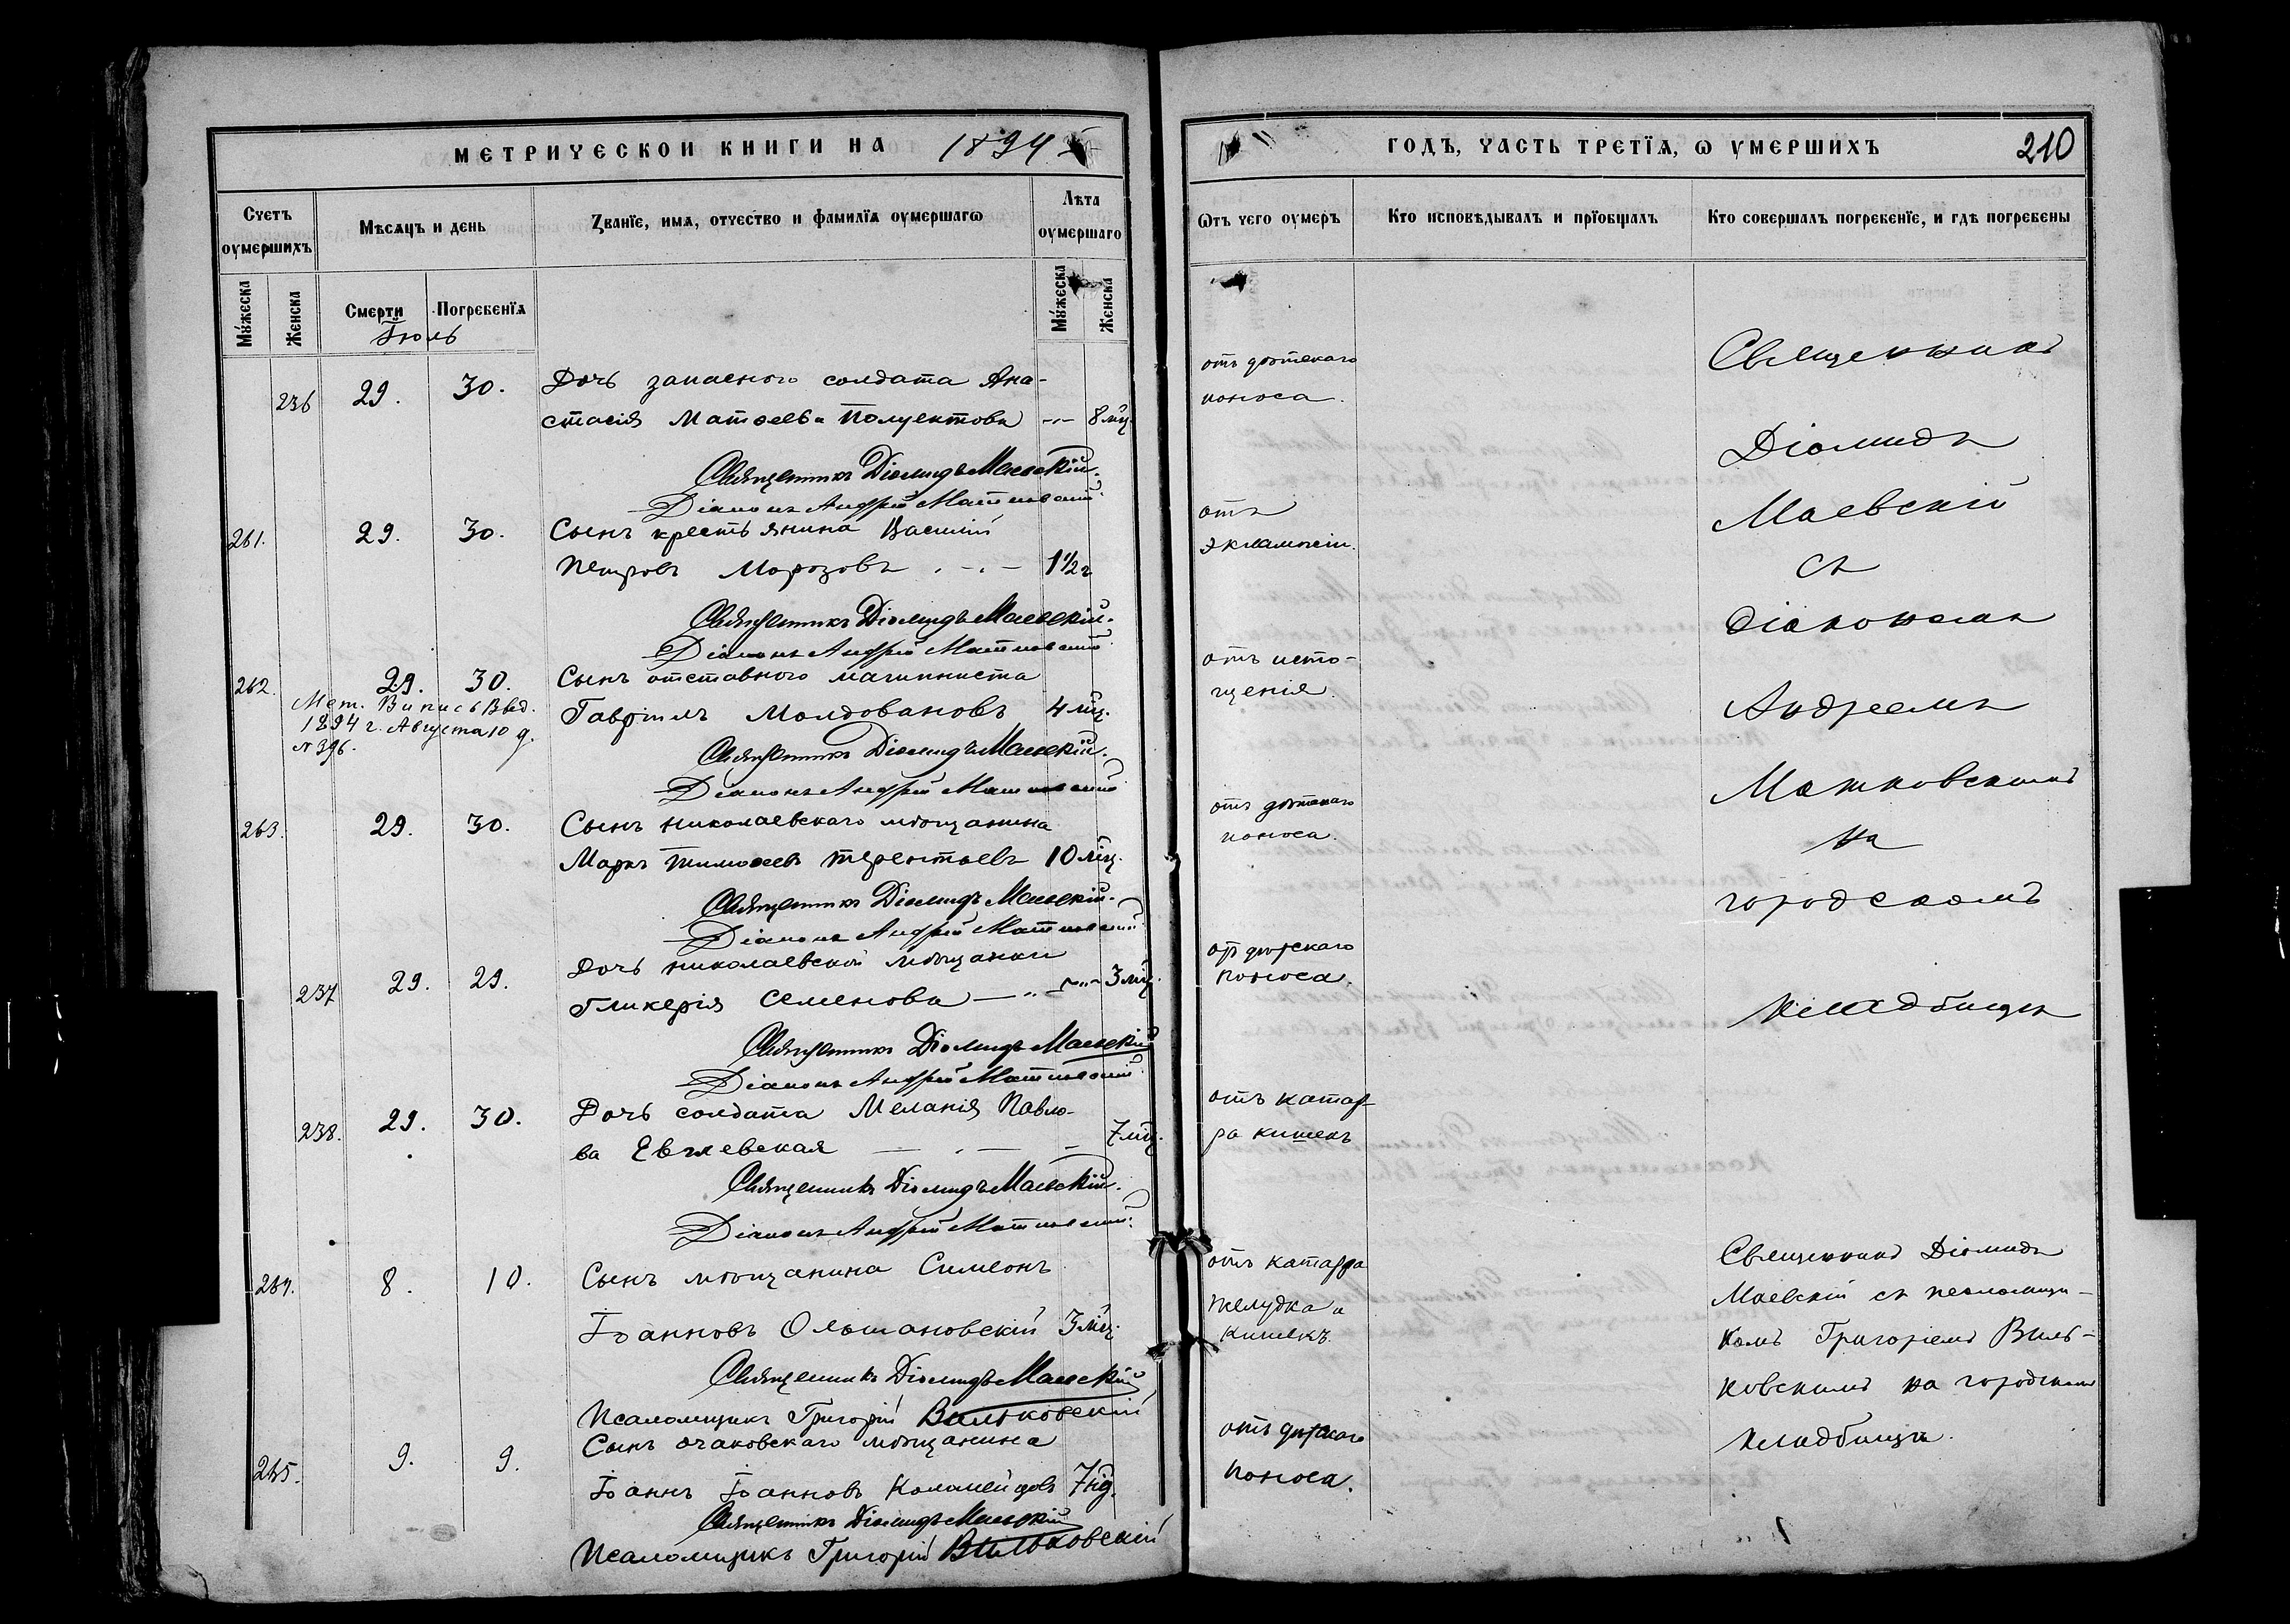 МЕТРИЧЕСКОЙ КНИГИ НА 1894
Счетъ оумершихъ
Мѣсяцъ и день
Званїе, имя, отчество и фамилїя оумершагѡ
Лѣта оумершаго
Мꙋжеска
Женска
Смерти
Погребенїя
Мꙋжеска
Женска
Іюль
236 29. 30. Дочь запаснаго солдата Ана-
стасія Матѳеева Полуектова 8 мц.
Священникъ Діомидъ Маевскій.
Діаконъ Андрей Матковскій
261. 29. 30. Сынъ крестьянина Василій
Петровъ Морозовъ 1½ г
Священникъ Діомидъ Маевскій.
Діаконъ Андрей Матковскій
262. 29. 30. Сынъ отставного машиниста
Мет. Выпись Выд.
1894 г. Августа 10 д.
№ 396.
Гавріилъ Молдовановъ 4 мц.
Священникъ Діомидъ Маевскій.
Діаконъ Андрей Матковскій
263. 29. 30. Сынъ николаевскаго мѣщанина
Маркъ Тимоѳеевъ Терентьевъ 10 мц.
Священникъ Діомидъ Маевскій.
Діаконъ Андрей Матковскій
237 29. 29. Дочь николаевской мѣщанки
Гликерія Семенова 3 мц.
Священникъ Діомидъ Маевскій
Діаконъ Андрей Матковскій
238. 29. 30. Дочь солдата Меланія Павло-
ва 7 мц.
Священникъ Діомидъ Маевскій.
Діаконъ Андрей Матковскій.
264. 8. 10. Сынъ мѣщанина Симеонъ
Іоанновъ Ольшановскій 3 мц.
Священникъ Діомидъ Маевскій
Псаломщикъ Григорій Вильковскій
265. 9. 9. Сынъ очаковскаго мѣщанина
Іоаннъ Іоанновъ 7 нд.
Священникъ Діомидъ Маевскій
Псаломщикъ Григорій Вильковскій
ГОДЪ, ЧАСТЬ ТРЕТЇЯ, Ѡ УМЕРШИХЪ 210
Ѿтъ чего оумеръ
Кто исповѣдывалъ и прїобщалъ
Кто совершалъ погребенїе, и гдѣ погребены
отъ дѣтскаго
поноса.
отъ
эклампсіи.
отъ исто-
щенія.
отъ дѣтскаго
поноса.
отъ дѣтскаго
поноса.
отъ катар-
ра кишекъ
отъ катарра
желудка и
кишекъ.
отъ дѣтскаго
поноса.
Священникъ
Діомидъ
Маевскій
съ
діакономъ
Андреемъ
Матковскимъ
на
городскомъ
кладбищѣ
Священникъ Діомидъ
Маевскій съ псаломщи-
комъ Григоріемъ Виль-
ковскимъ на городскомъ
кладбищѣ.